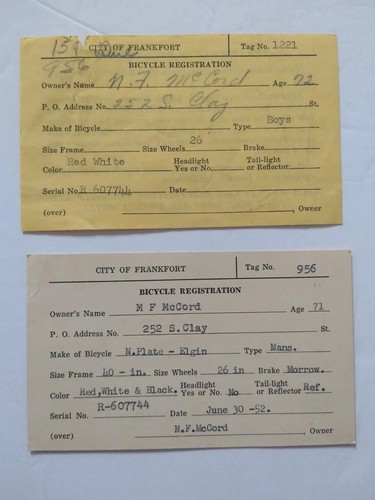 159
CITY OF FRANKFORT Tag No. 1221
956
BICYCLE REGISTRATION
Owner's Name N. F. McCord Age 72
P. O. Address No. 252 S. Clay St.
Make of Bicycle Type Boys
Size Frame Size Wheels 26 Brake
Color Red White Headlight Yes or No. Tail-light or Reflector
Serial No. R 607744 Date
(over) Owner
CITY OF FRANKFORT Tag No. 956
BICYCLE REGISTRATION
Owner's Name M F McCord Age 71
P. O. Address No. 252 S.Clay St.
Make of Bicycle N.Plate - Elgin Type Mans.
Size Frame 40 - in. Size Wheels 26 in Brake Morrow.
Color Red,White & Black. Headlight Yes or No. No Tail-light or Reflector Ref.
Serial No. R-607744 Date June 30 -52.
(over) N.F.McCord , Owner